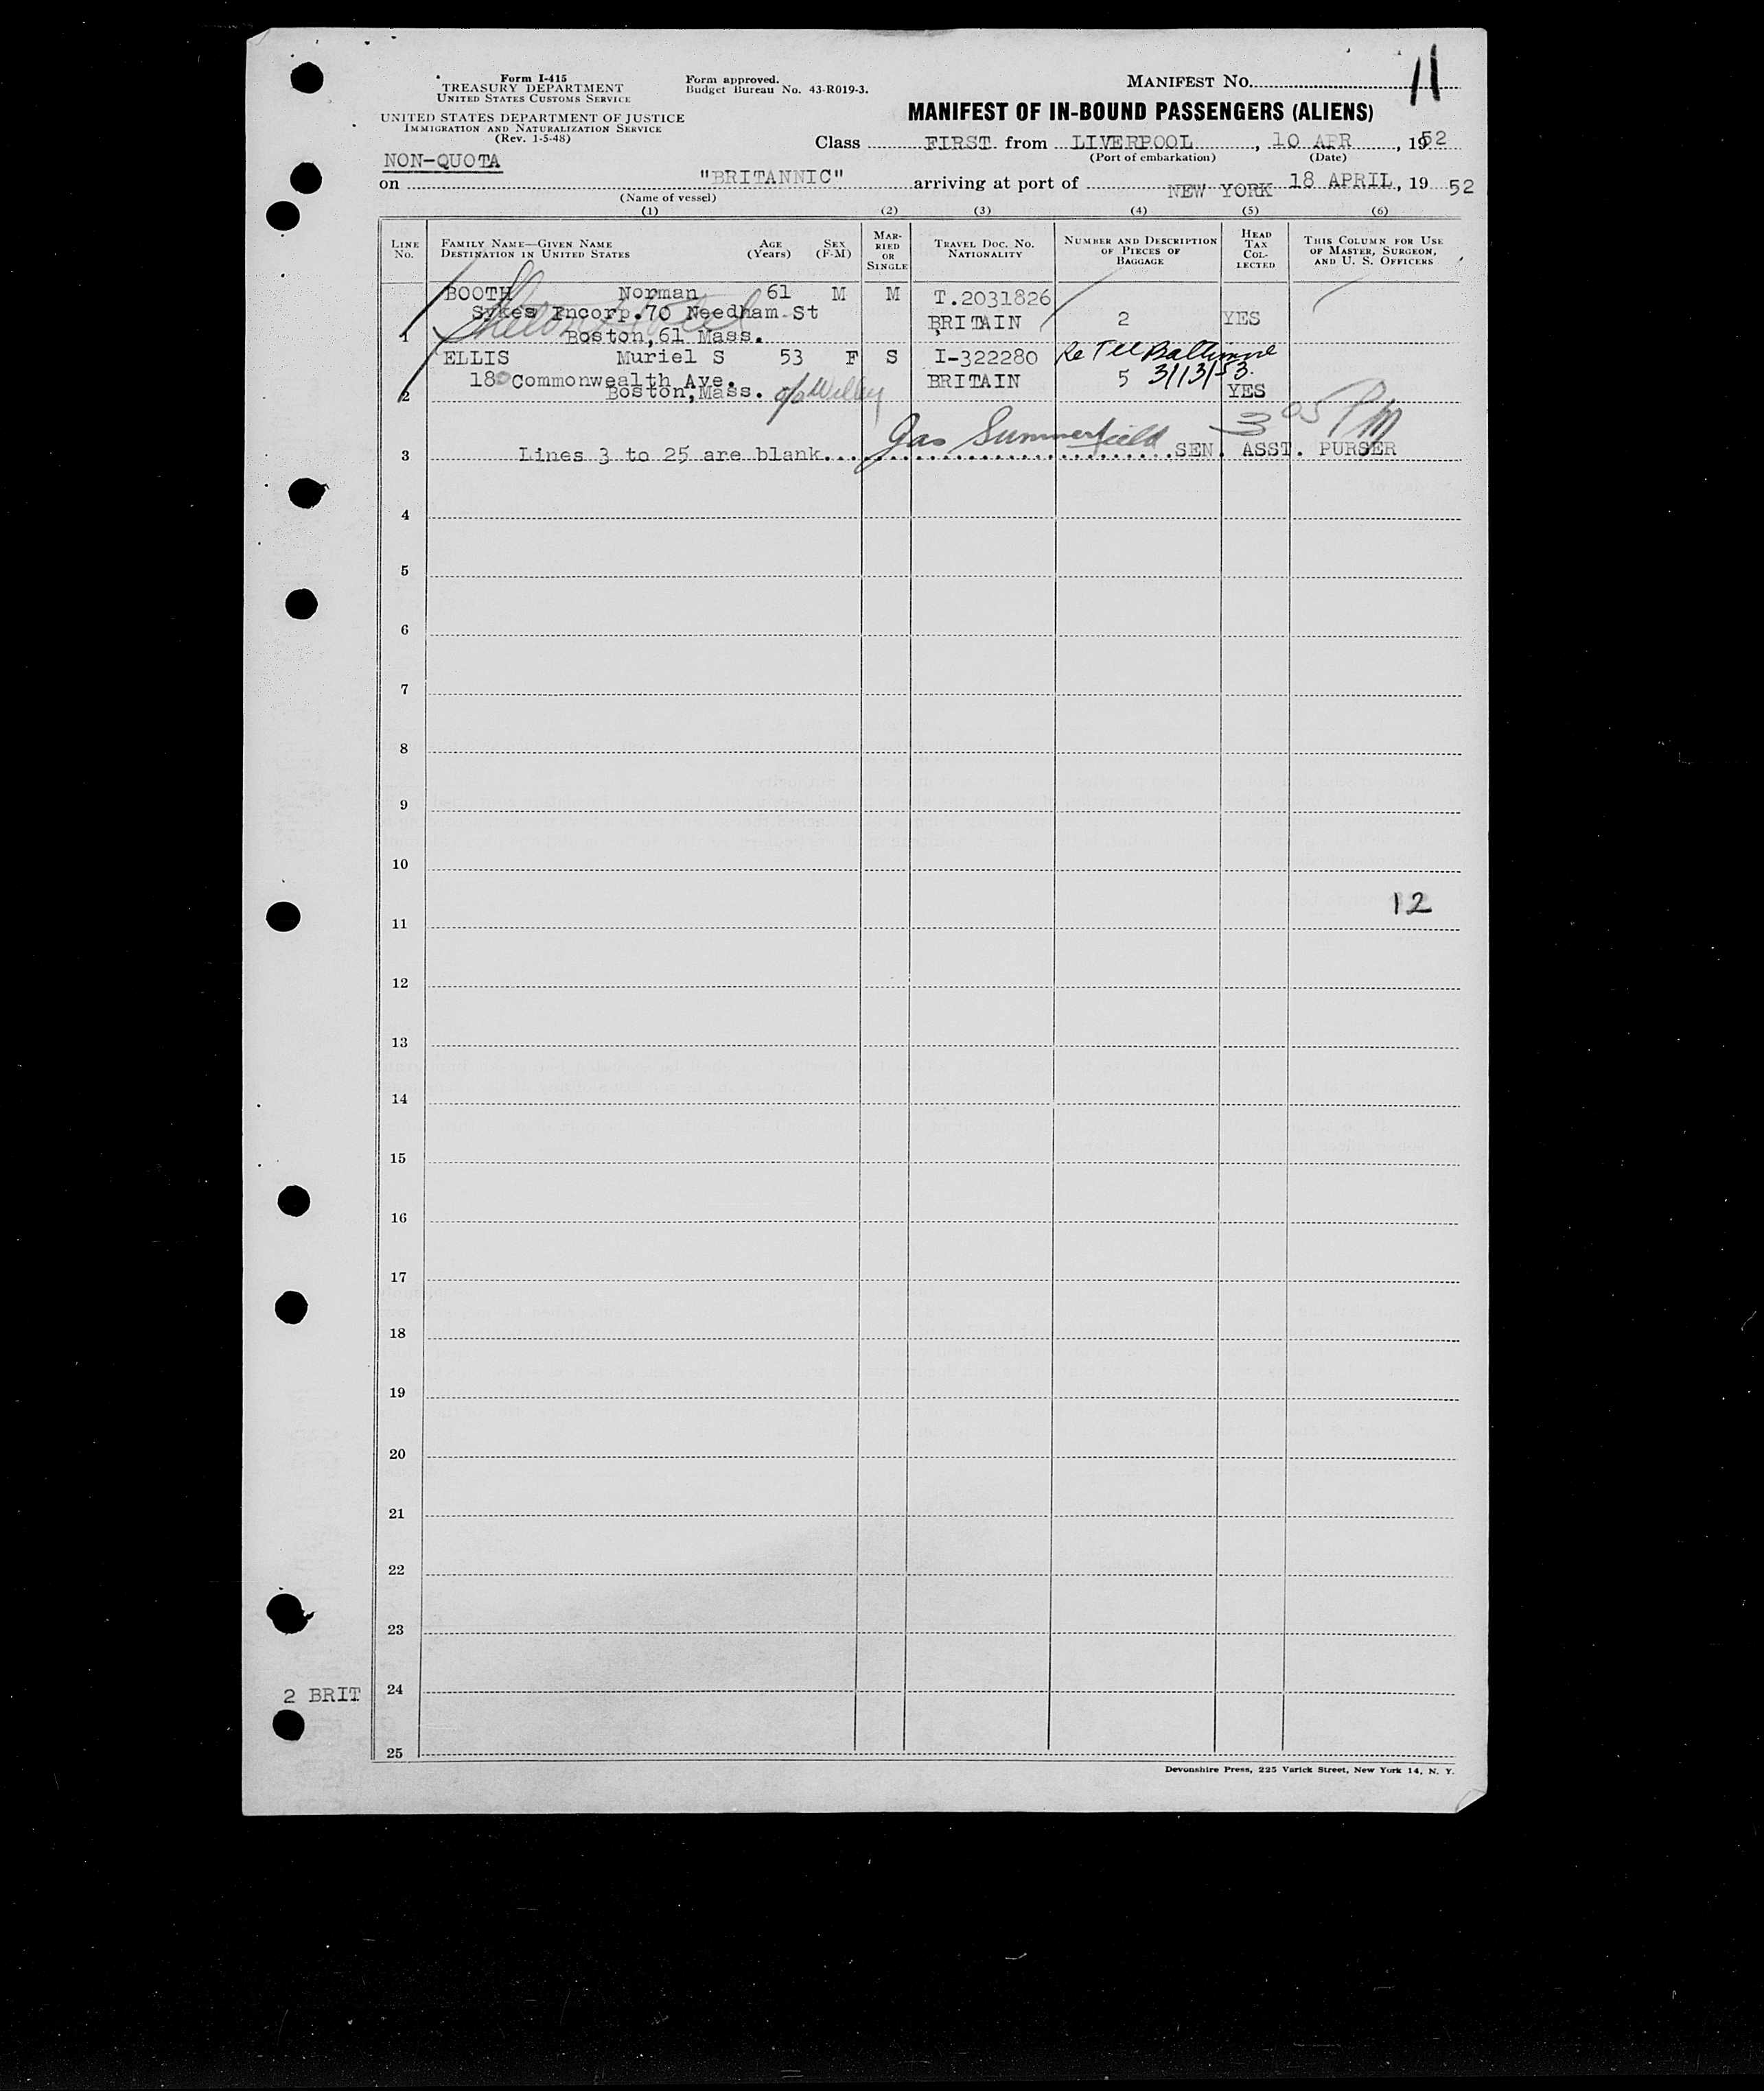 Form I-415
TREASURY DEPARTMENT
UNITED STATES CUSTOMS SERVICE
UNITED STATES DEPARTMENT OF JUSTICE
IMMIGRATION AND NATURALIZATION SERVICE
(Rev. 1-5-48)
Form approved.
Budget Bureau No. 43-R019-3.
MANIFEST NO. 11
MANIFEST OF IN-BOUND PASSENGERS (ALIENS)
Class FIRST from LIVERPOOL, 10 APR, 1952
(Port of embarkation) (Date)
NON-QUOTA
on "BRITANNIC" arriving at port of NEW YORK 18 APRIL, 19 52
(Name of vessel)
(1) (2) (3) (4) (5) (6)
LINE NO.
FAMILY NAME—GIVEN NAME
DESTINATION IN UNITED STATES
AGE (Years)
SEX (F-M)
MARRIED OR SINGLE
TRAVEL DOC. NO.
NATIONALITY
NUMBER AND DESCRIPTION OF PIECES OF BAGGAGE
HEAD TAX COLLECTED
THIS COLUMN FOR USE OF MASTER, SURGEON, AND U. S. OFFICERS
BOOTH Norman 61 M M T.2031826
Sykes Incorp.70 Needham St BRITAIN 2 YES
1 Boston,61 Mass.
ELLIS Muriel S 53 F S I-322280 Re Tel Baltimore
180 Commonwealth Ave. BRITAIN 5 3/13/53.
2 Boston,Mass. YES
305 PM
Gas Summerfield
3 Lines 3 to 25 are blank. SEN. ASST. PURSER
4
5
6
7
8
9
10
12
11
12
13
14
15
16
17
18
19
20
21
22
23
2 BRIT
24
25
Devonshire Press, 225 Varick Street, New York 14, N. Y.